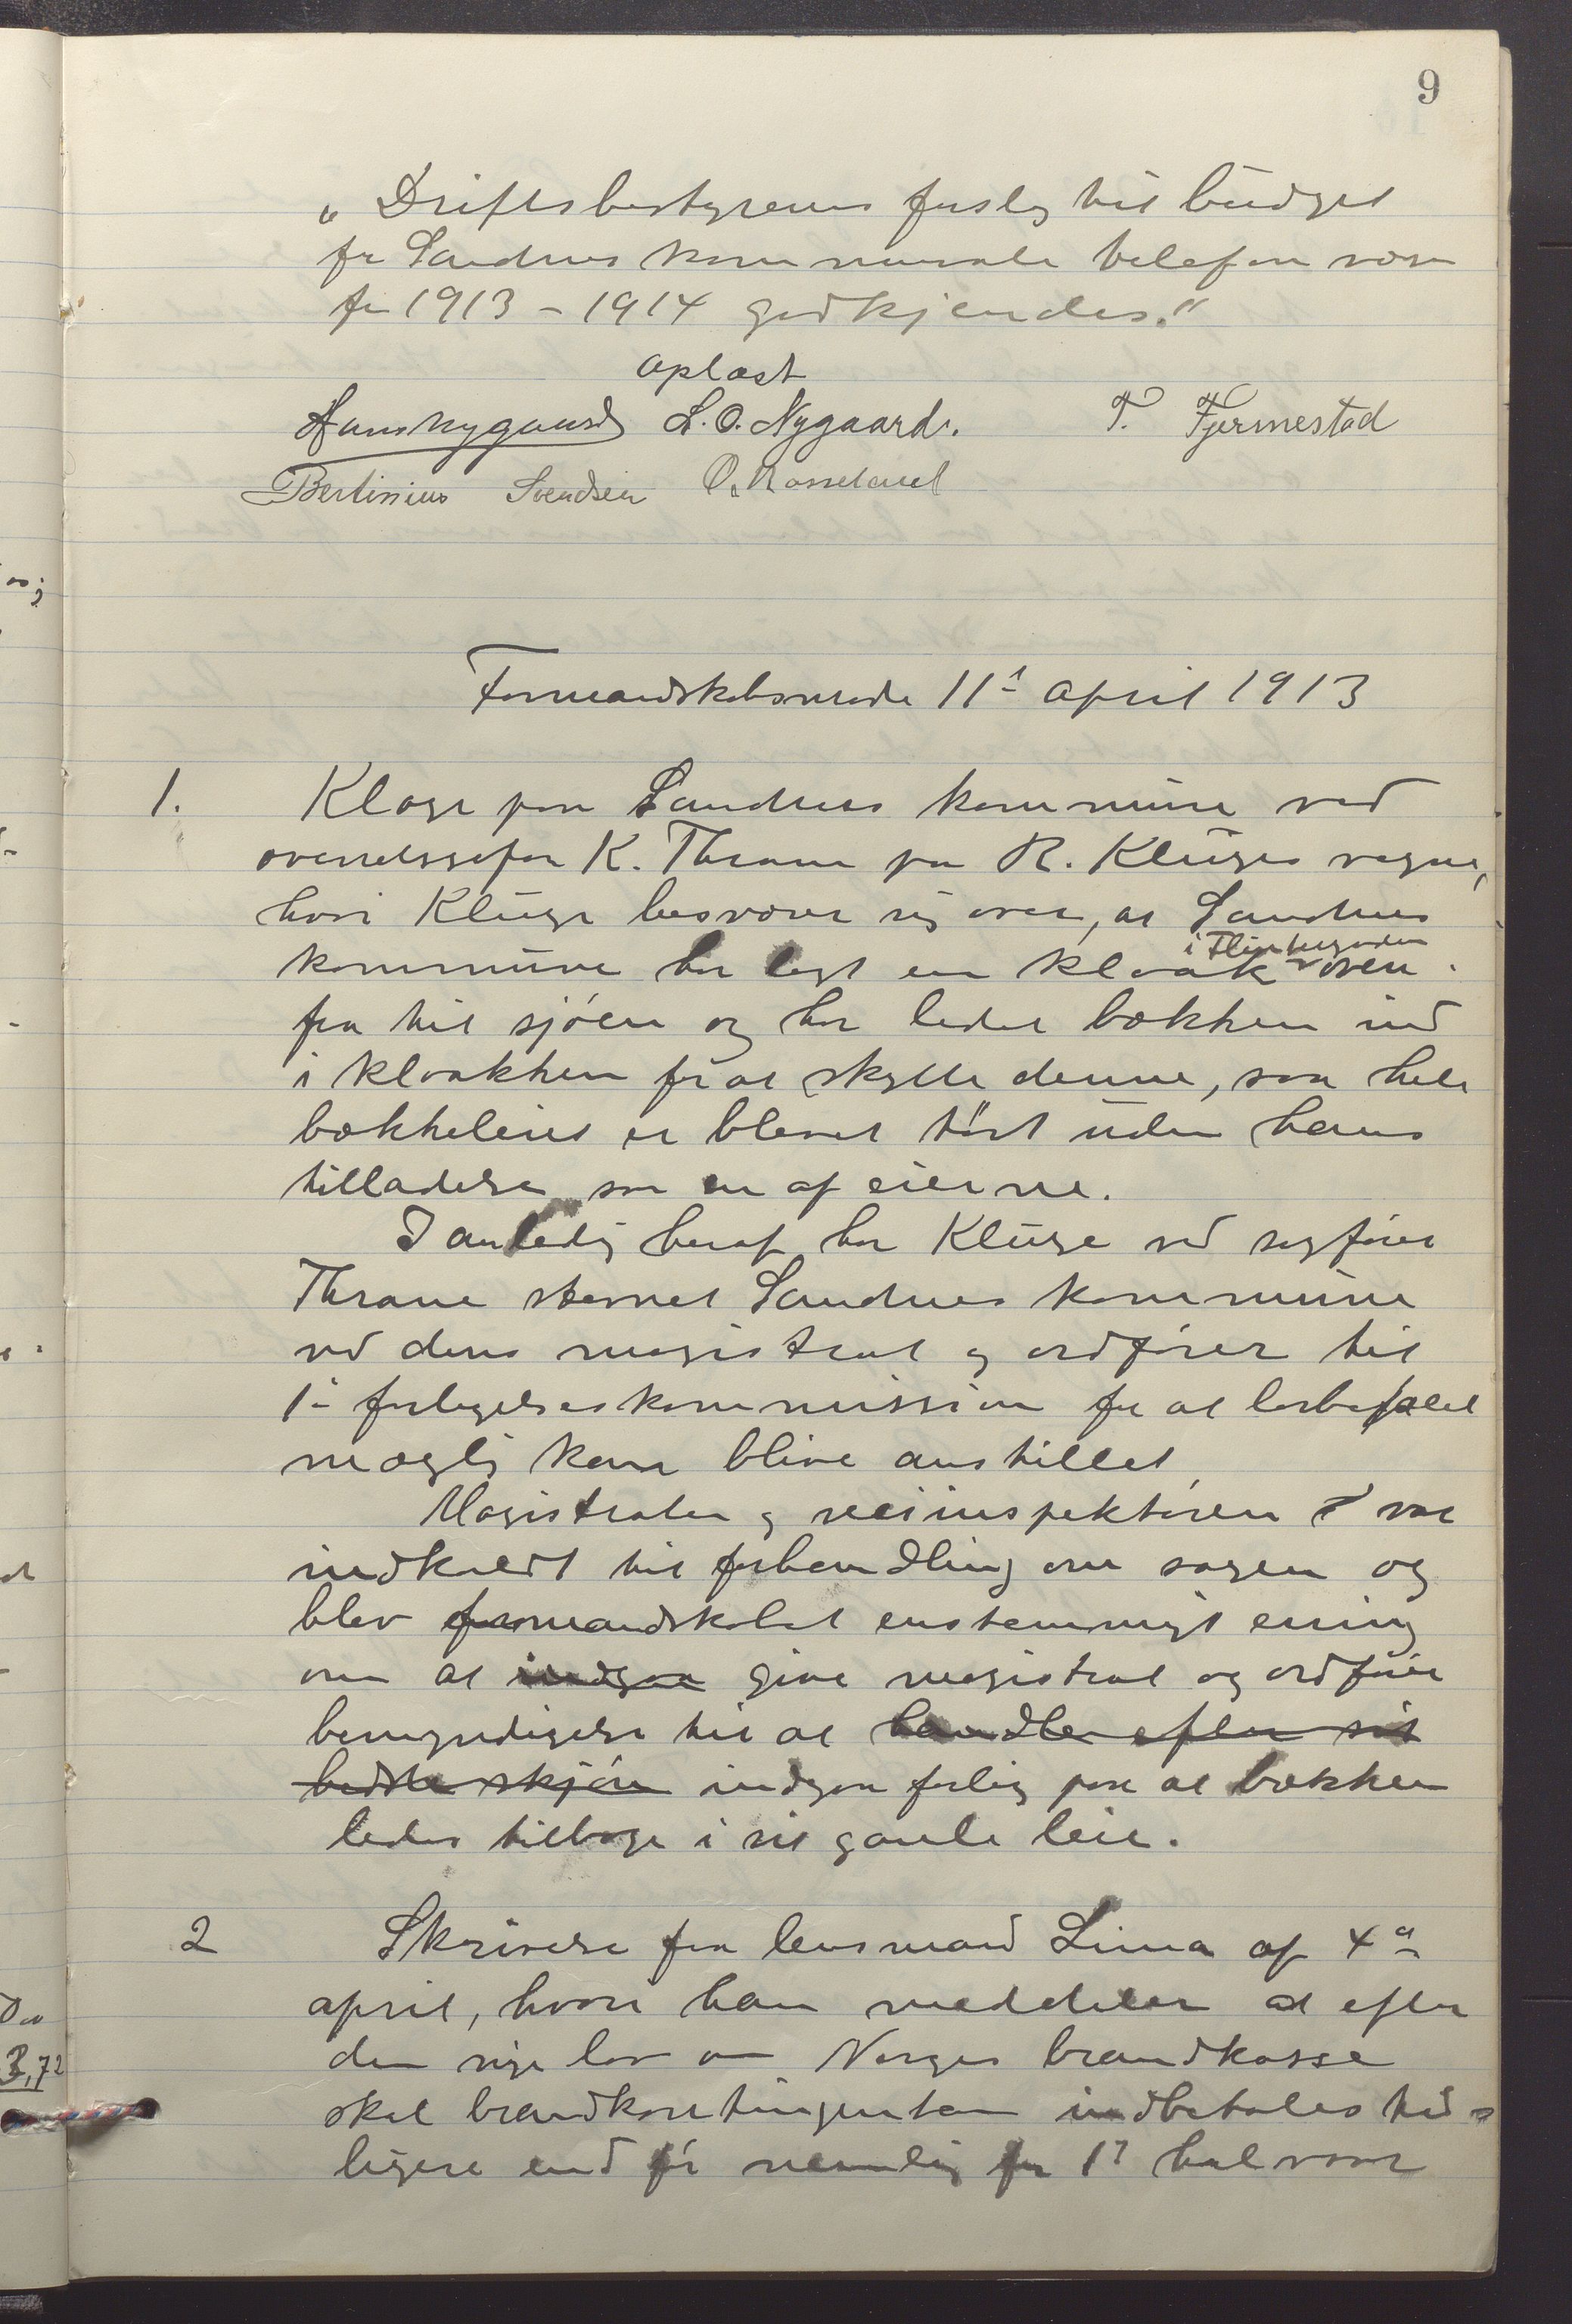 9
„Driftsbestyrerens forslag til budget
for Sandnes kommunale telefonvæsen
for 1913-1914 godkjendes."
Oplæst
Hans Nygaard L. O. Nygaard. T. Fjermestad
Bertinius Svendsen O. Rosseland
Formandskabsmøde 11te april 1913
1. Klage paa Sandnes kommune ved
overretssagfører K. Thrane paa R. Kluges vegne,
hvori Kluge besværer sig over, at Sandnes
i Flintegaden
kommune har lagt en kloak oven
fra til sjøen og har ledet bækken ind
i kloakken for at skylle denne, saa hele
bækkeleiet er blevet tørt uden hans
tilladelse som en af eierne.
I anledning heraf har Kluge ved sagfører
Thrane stevnet Sandnes kommune
ved dens magistrat og ordfører til
1ste forligelseskommission for at lovbefalet
mægling kan blive anstillet.
Magistraten og veiinspektøren var
indkaldt til forhandling om sagen og
blev formandskabet enstemmigt enig
om at indgaa give magistrat og ordfører
bemyndigelse til at handle efter sit
bedste skjøn indgaa forlig paa at bækken
ledes tilbage i sit gamle leie.
2 Skrivelse fra lensmand Lima af 4de
april, hvori han meddeler at efter
den nye lov om Norges brandkasse
skal brandkontingenten indbetales tid-
ligere end før nemlig for 1ste halvaar